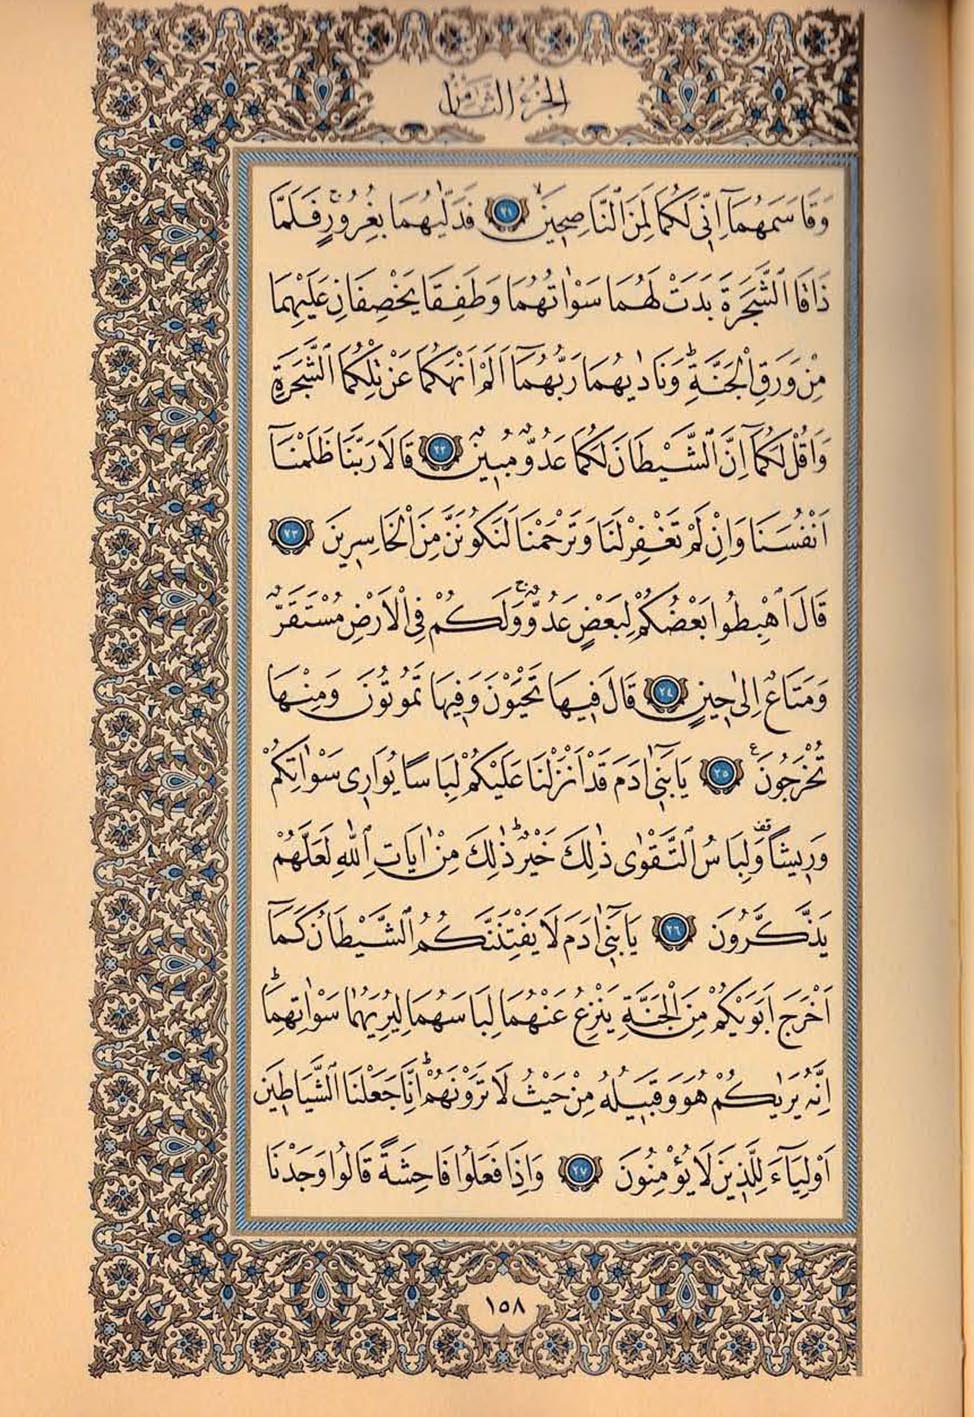 الجزء الثامن
وَقَاسَمَهُمَٓا اِنّ۪ي لَكُمَا لَمِنَ النَّاصِح۪ينَۙ ﴿٢١﴾ فَدَلّٰيهُمَا بِغُرُورٍۚ فَلَمَّا
ذَاقَا الشَّجَرَةَ بَدَتْ لَهُمَا سَوْاٰتُهُمَا وَطَفِقَا يَخْصِفَانِ عَلَيْهِمَا
مِنْ وَرَقِ الْجَنَّةِۜ وَنَادٰيهُمَا رَبُّهُمَٓا اَلَمْ اَنْهَكُمَا عَنْ تِلْكُمَا الشَّجَرَةِ
وَاَقُلْ لَكُمَٓا اِنَّ الشَّيْطَانَ لَكُمَا عَدُوٌّ مُب۪ينٌ ﴿٢٢﴾ قَالَا رَبَّنَا ظَلَمْنَٓا
اَنْفُسَنَا وَاِنْ لَمْ تَغْفِرْ لَنَا وَتَرْحَمْنَا لَنَكُونَنَّ مِنَ الْخَاسِر۪ينَ ﴿٢٣﴾
قَالَ اهْبِطُوا بَعْضُكُمْ لِبَعْضٍ عَدُوٌّۚ وَلَكُمْ فِي الْاَرْضِ مُسْتَقَرٌّ
وَمَتَاعٌ اِلٰى ح۪ينٍ ﴿٢٤﴾ قَالَ ف۪يهَا تَحْيَوْنَ وَف۪يهَا تَمُوتُونَ وَمِنْهَا
تُخْرَجُونَ۟ ﴿٢٥﴾ يَا بَن۪ٓي اٰدَمَ قَدْ اَنْزَلْنَا عَلَيْكُمْ لِبَاسًا يُوَار۪ي سَوْاٰتِكُمْ
وَر۪يشًاۜ وَلِبَاسُ التَّقْوٰى ذٰلِكَ خَيْرٌۜ ذٰلِكَ مِنْ اٰيَاتِ اللّٰهِ لَعَلَّهُمْ
يَذَّكَّرُونَ ﴿٢٦﴾ يَا بَن۪ٓي اٰدَمَ لَا يَفْتِنَنَّكُمُ الشَّيْطَانُ كَمَٓا
اَخْرَجَ اَبَوَيْكُمْ مِنَ الْجَنَّةِ يَنْزِعُ عَنْهُمَا لِبَاسَهُمَا لِيُرِيَهُمَا سَوْاٰتِهِمَاۜ
اِنَّهُ يَرٰيكُمْ هُوَ وَقَب۪يلُهُ مِنْ حَيْثُ لَا تَرَوْنَهُمْۜ اِنَّا جَعَلْنَا الشَّيَاط۪ينَ
اَوْلِيَٓاءَ لِلَّذ۪ينَ لَا يُؤْمِنُونَ ﴿٢٧﴾ وَاِذَا فَعَلُوا فَاحِشَةً قَالُوا وَجَدْنَا
١٥٨